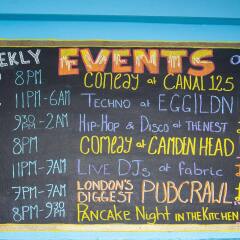 EEKLY EVENTS
8PM COMEDY at CANAL 125
11PM-6AM TECHNO at EGG|LDN
9:30-2AM HIP-HOP & DISCO at THE NEST
8PM COMEDY at CAMDEN HEAD
11PM-7AM LIVE DJs at fabric
7PM-7AM LONDON'S BIGGEST PUBCRAWL
8PM-9:30PM PANCAKE NIGHT IN THE KITCHEN